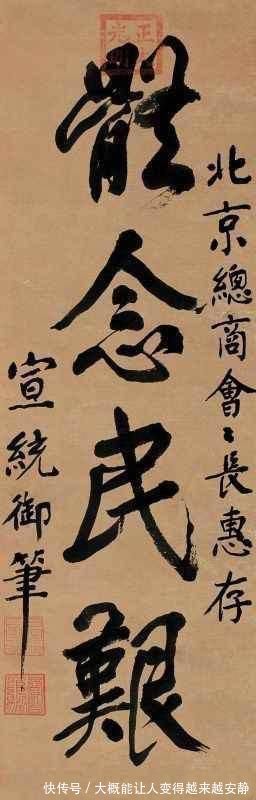 北京總商會〻長惠存
體念民艱
宣統御筆
快传号 / 大概能让人变得越来越安静